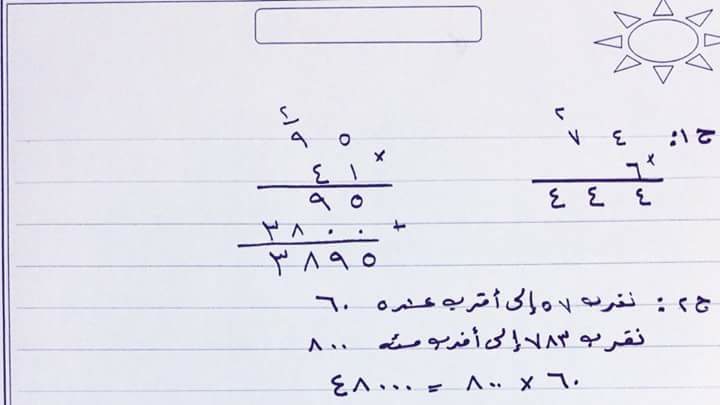 ج١: ٧٤ × ٦ = ٤٤٤
٢
٧ ٤
× ٦
٤ ٤ ٤
٢
٩ ٥
×
٤ ١
٩ ٥
٣ ٨ ٠ ٠ +
٣ ٨ ٩ ٥
ج٢: نقرب ٥٧ إلى أقرب عشرة ٦٠
نقرب ٧٨٣ إلى أقرب مئة ٨٠٠
٦٠ × ٨٠٠ = ٤٨٠٠٠